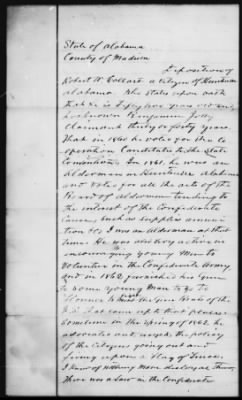 State of Alabama
County of Madison
Deposition of
Robert W. a citizen of Huntsville
Alabama. He states upon oath
that he is fifty five years old and
has known Benjamin Jolly
Claimant thirty or forty years.
That in 1860 he voted for the Co
operation Candidates to the State
Convention. In 1861. he was an
Alderman in Huntsville Alabama
and voted for all the acts of the
Board of Aldermen tending to
the interest of the Confederate
Cause, such as supplies ammuni
tion &c I was an Alderman at that
time. He was also very active in
encouraging young men to
volunteer in the Confederate Army
and in 1862, furnished his gun
to some young man to go to
Florence to meet the Gun Boats of the
U.S. that came up that river
sometime in the spring of 1862. he
advocated and urged the policy
of the citizens going out and
firing upon a Flag of Truce.
I know of nothing more disloyal than
There was a law in the Confederate